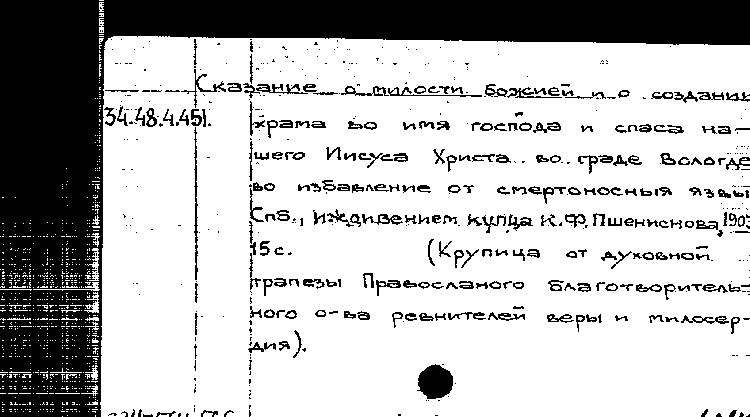 Сказание о милости Божией и о создании
34.48.4.451. храма во имя господа и спаса на-
шего Иисуса Христа во граде Вологде
во избавление от смертоносныя язвы
Спб., иждивением купца К.Ф. Пшениснова, 1903
15с. (Крупица от духовной
трапезы Правосланого благотворитель-
ного о-ва ревнителей веры и милосер-
дия).